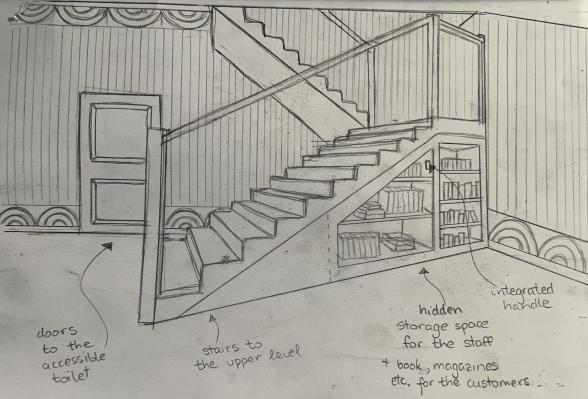 doors
to the
accessible
toilet
stairs to
the upper level
hidden
storage space
for the staff
+ book, magazines
etc. for the customers....
integrated
handle